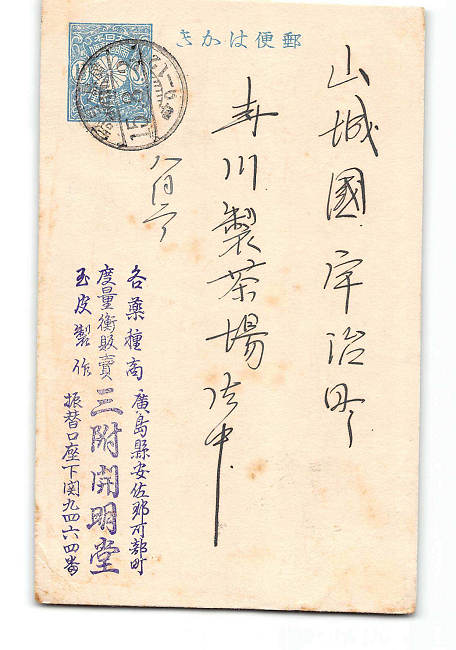 郵便はかき
山城國宇治町
寿川製茶場御中
八月
各藥種商
度量衡販賣
玉皮製作
廣島縣安佐郡可部町
三附開明堂
振替口座下関九四六四番